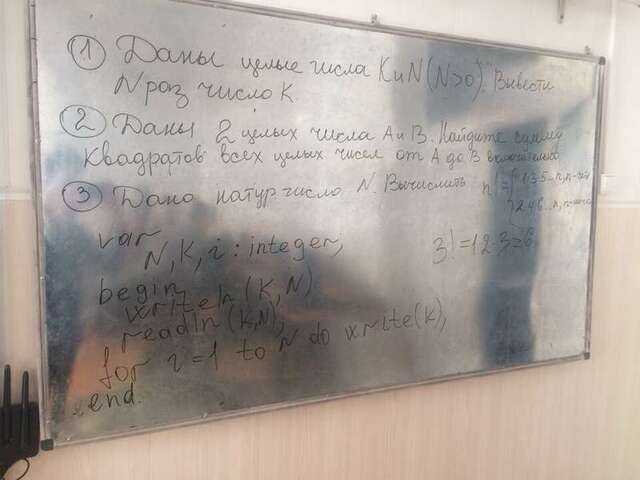 ① Даны целые числа K и N (N>0). Вывести
N раз число K.
② Даны 2 целых числа A и B. Найдите сумму
квадратов всех целых чисел от A до B включительно
③ Дано натур число N. Вычислить n! = { 1·3·5...n, n-
2·4·6...n, n-
3! = 1·2·3=6
var
N, K, i : integer;
begin
writeln (K, N)
readln (K,N);
for i = 1 to N do write(K);
end.